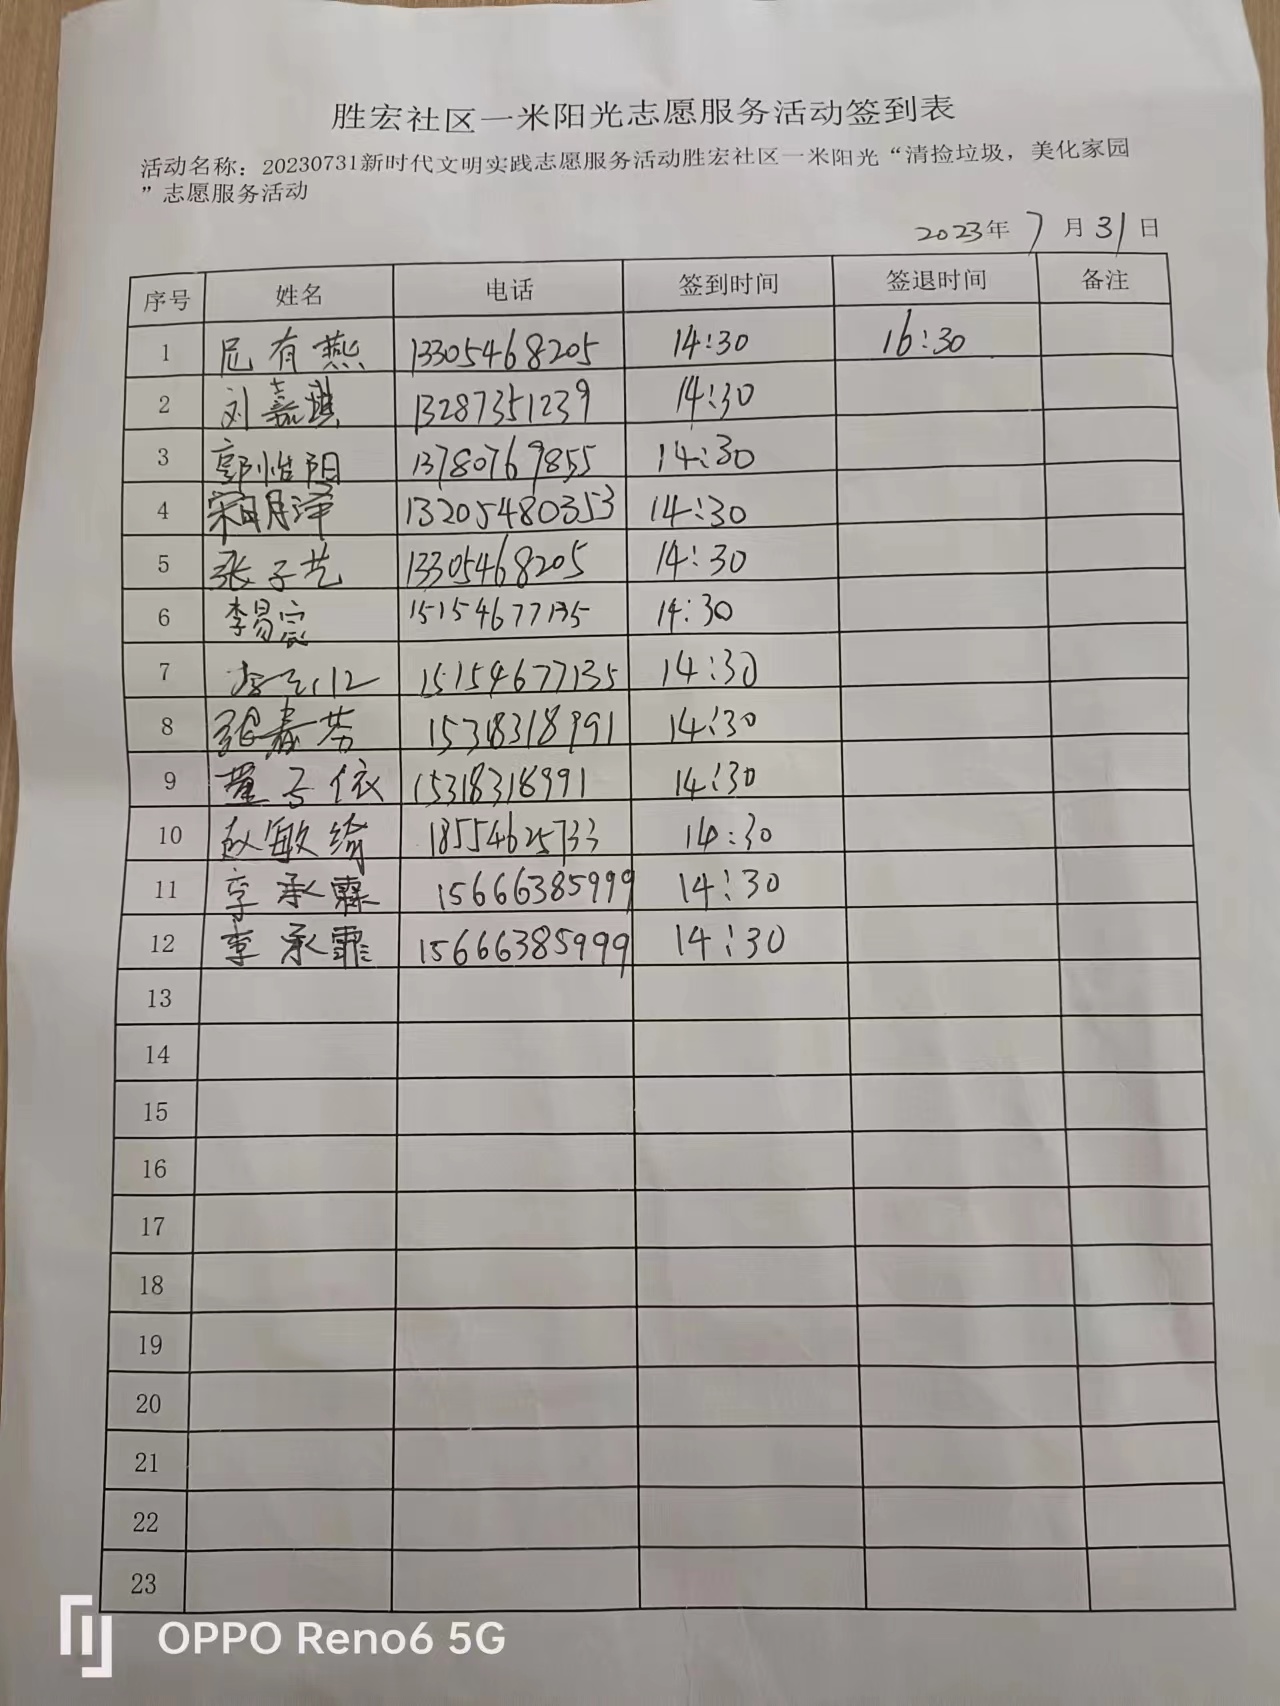 胜宏社区一米阳光志愿服务活动签到表
活动名称：20230731新时代文明实践志愿服务活动胜宏社区一米阳光“清捡垃圾，美化家园
”志愿服务活动
2023年 7 月 31 日
序号 姓名 电话 签到时间 签退时间 备注
1 尼有燕 13305468205 14:30 16:30
2 刘嘉琪 13287351239 14:30
3 郭惟阳 13780769855 14:30
4 宋明泽 13205480353 14:30
5 张子艺 13305468205 14:30
6 李易宸 15154677135 14:30
7 15154677135 14:30
8 张春芳 15318318991 14:30
9 董子依 15318318991 14:30
10 赵敏 18554625733 14:30
11 李承霖 15666385999 14:30
12 李承霏 15666385999 14:30
13
14
15
16
17
18
19
20
21
22
23
OPPO Reno6 5G